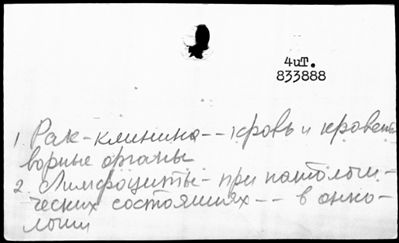 4иТ.
833888
1. Рак-клиника--кровь и кровет-
ворные органы
2. Лимфоциты-при патологи-
ческих состояниях -- в онко-
логии